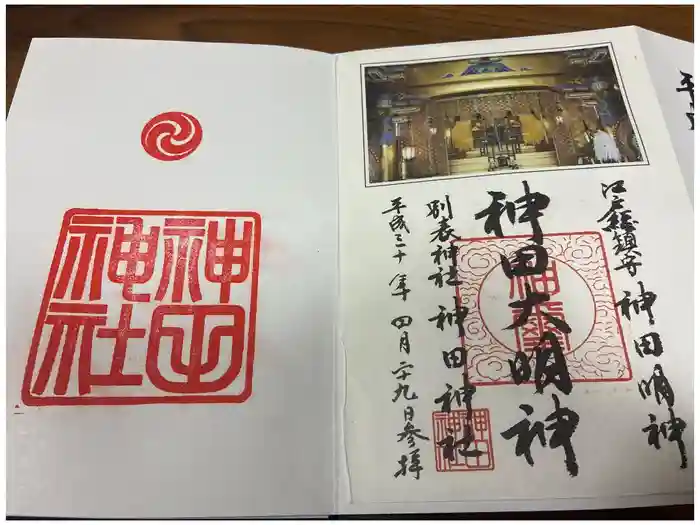 江戸総鎮守 神田明神
神田大明神
別表神社 神田神社
平成三十年四月二九日参拝
神田
神社
神田
神社